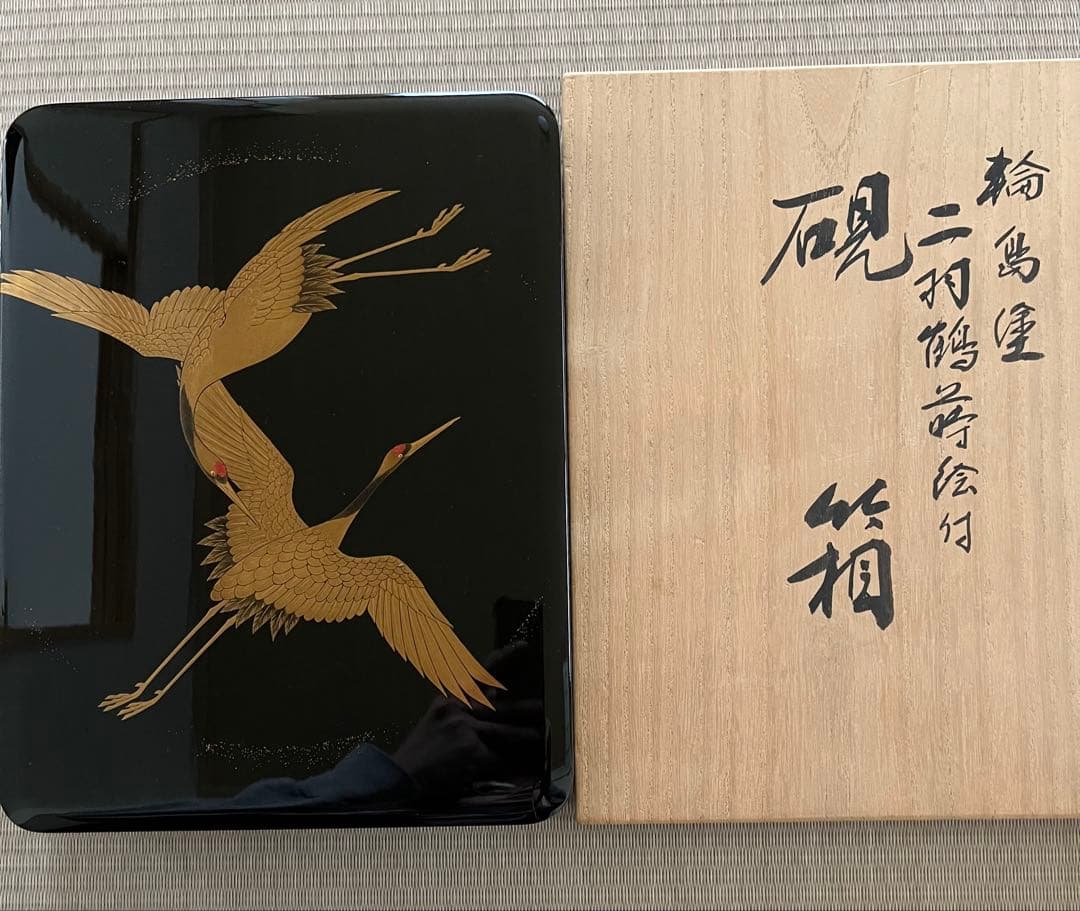 輪島塗
二羽鶴蒔绘付
硯箱